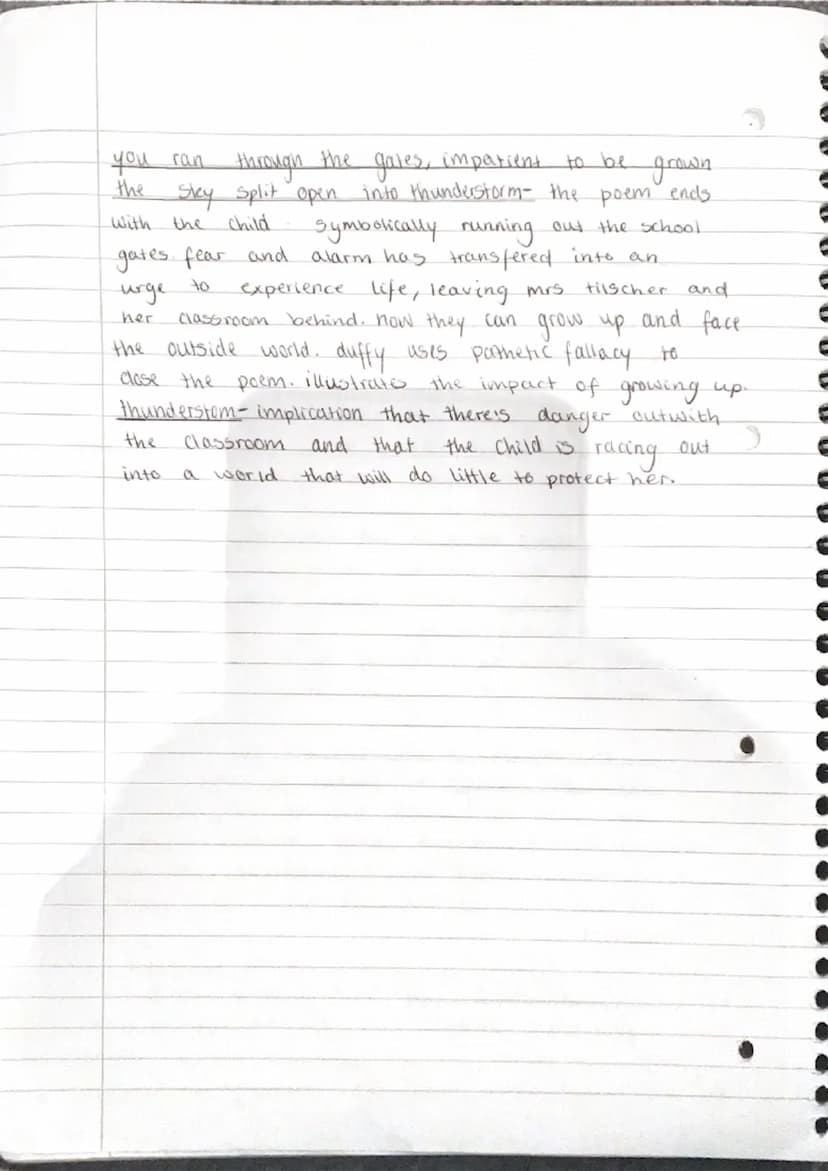 you ran through the gates, impatient to be grown
the sky split open into thunderstorm- the poem ends
with the child symbolically running out the school
gates. fear and alarm has transfered into an
urge to experience life, leaving mrs tilscher and
her classroom behind. now they can grow up and face
the outside world. duffy uses pathetic fallacy to
close the poem. illustrates the impact of growing up.
thunderstom- implication that there's danger outwith
the classroom and that the child is racing out
into a world that will do little to protect her.